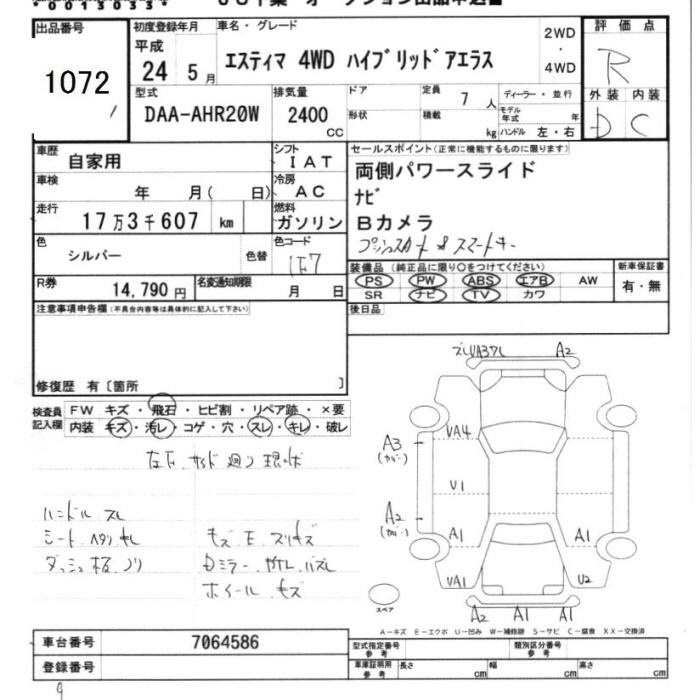 出品番号
1072
初度登録年月
平成
24 5 月
車名・グレード
エスティマ 4WD ハイブリッドアエラス
2WD
・
4WD
評価点
R
外装 内装
D C
型式
DAA-AHR20W
排気量
2400
CC
ドア
形状
定員
7 人
積載
kg
ディーラー・並行
モデル
年式 年
ハンドル 左・右
車歴
自家用
シフト
IAT
車検
年 月( 日)
冷房
AC
走行
17万3千607 km
燃料
ガソリン
色
シルバー
色替
色コード
1F7
R券
14,790 円
名変通知期限
月 日
セールスポイント(正常に機能するものに限ります)
両側パワースライド
ナビ
Bカメラ
プッシュスタート & スマートキー
装備品(純正品に限り○をつけてください)
PS PW ABS エアB AW
SR ナビ TV カワ
新車保証書
有・無
後日品
注意事項申告欄(不具合内容等は具体的に記入して下さい)
修復歴 有〔箇所 〕
検査員
記入欄
FW キズ・飛石・ヒビ割・リペア跡・×要
内装 キズ・汚レ・コゲ・穴・スレ・キレ・破レ
ハンドル スレ
シート ヘタリ キレ
キズ E スリキズ
ホイール キズ
A2
VA4
A3
U1
A2
A1
A1
VA1
U2
A2 A1 A1
スペア
A-キズ E-エクボ U-凹み W-補修跡 S-サビ C-腐食 XX-交換済
車台番号
7064586
登録番号
型式指定番号
参考
類別区分番号
参考
車庫証明用
参考
長さ cm
幅 cm
高さ cm